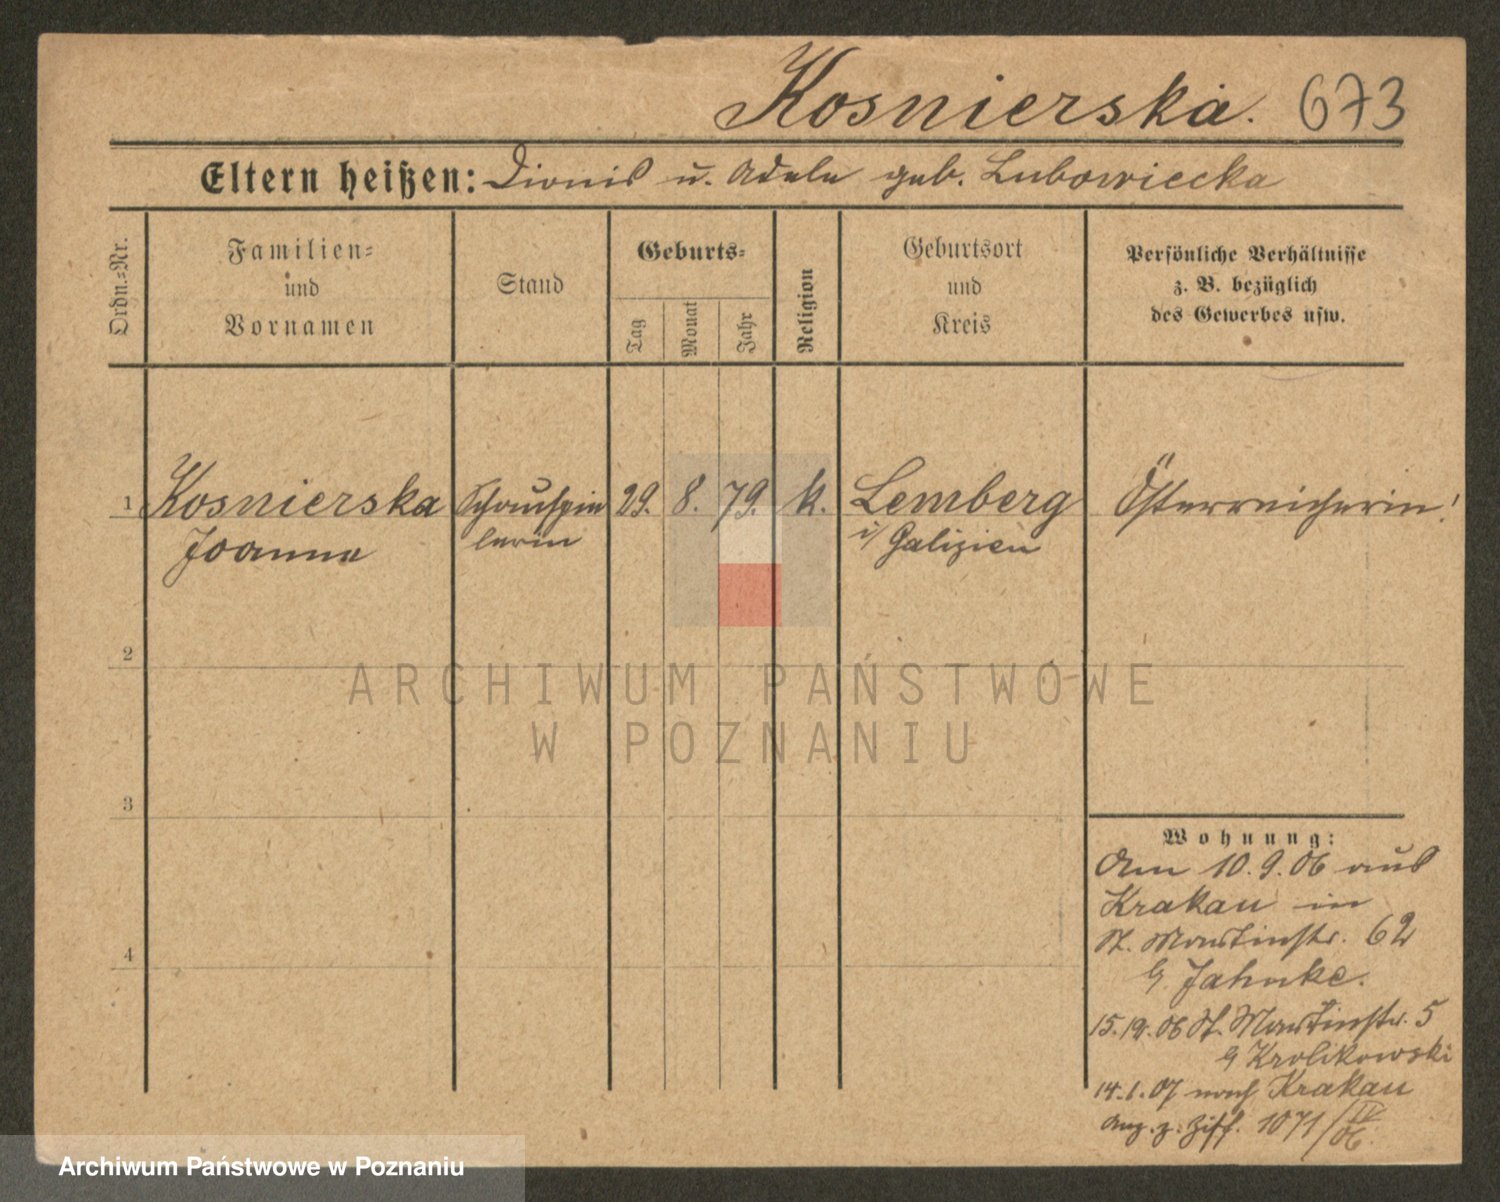 Kosnierska. 673
Eltern heißen: Dionis u. Adele geb. Lubowiecka
Ordn.-Nr.
Familien-
und
Vornamen
Stand
Geburts-
Tag
Monat
Jahr
Religion
Geburtsort
und
Kreis
Persönliche Verhältnisse
z. B. bezüglich
des Gewerbes usw.
1 Kosnierska Schauspie 29. 8. 79. k. Lemberg Österreicherin!
Joanna lerin i/ Galizien
2
ARCHIWUM PAŃSTWOWE
W POZNANIU
3
4
Wohnung:
Am 10.9.06 aus
Krakau in
St. Martinstr. 62
b/ Jahnke.
15.12.06 St. Martinstr. 5
b/ Krolikowski
14.1.07 nach Krakau
Anz. z. Ziff. 1071/IV 06.
Archiwum Państwowe w Poznaniu